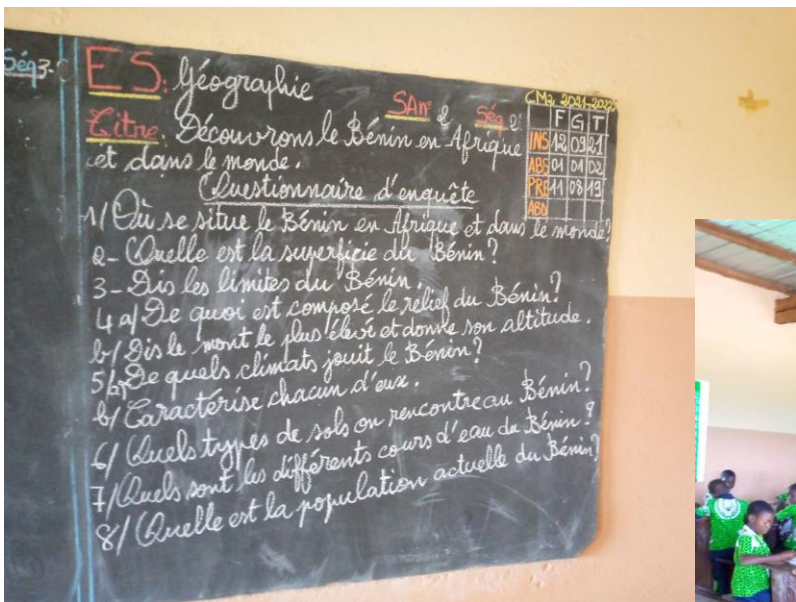 Séq3-
ES: Géographie
SAn° 2 Séq 2:
Titre: Découvrons le Bénin en Afrique
et dans le monde.
CM2 2021-2022
F G T
INS 12 09 21
ABS 01 01 02
PRE 11 08 19
ABD
Questionnaire d'enquête
1/ Où se situe le Bénin en Afrique et dans le monde?
2- Quelle est la superficie du Bénin?
3- Dis les limites du Bénin.
4 a/ De quoi est composé le relief du Bénin?
b/ Dis le mont le plus élevé et donne son altitude.
5/a/ De quels climats jouit le Bénin?
b/ Caractérise chacun d'eux.
6/ Quels types de sols on rencontre au Bénin?
7/ Quels sont les différents cours d'eau du Bénin?
8/ Quelle est la population actuelle du Bénin?